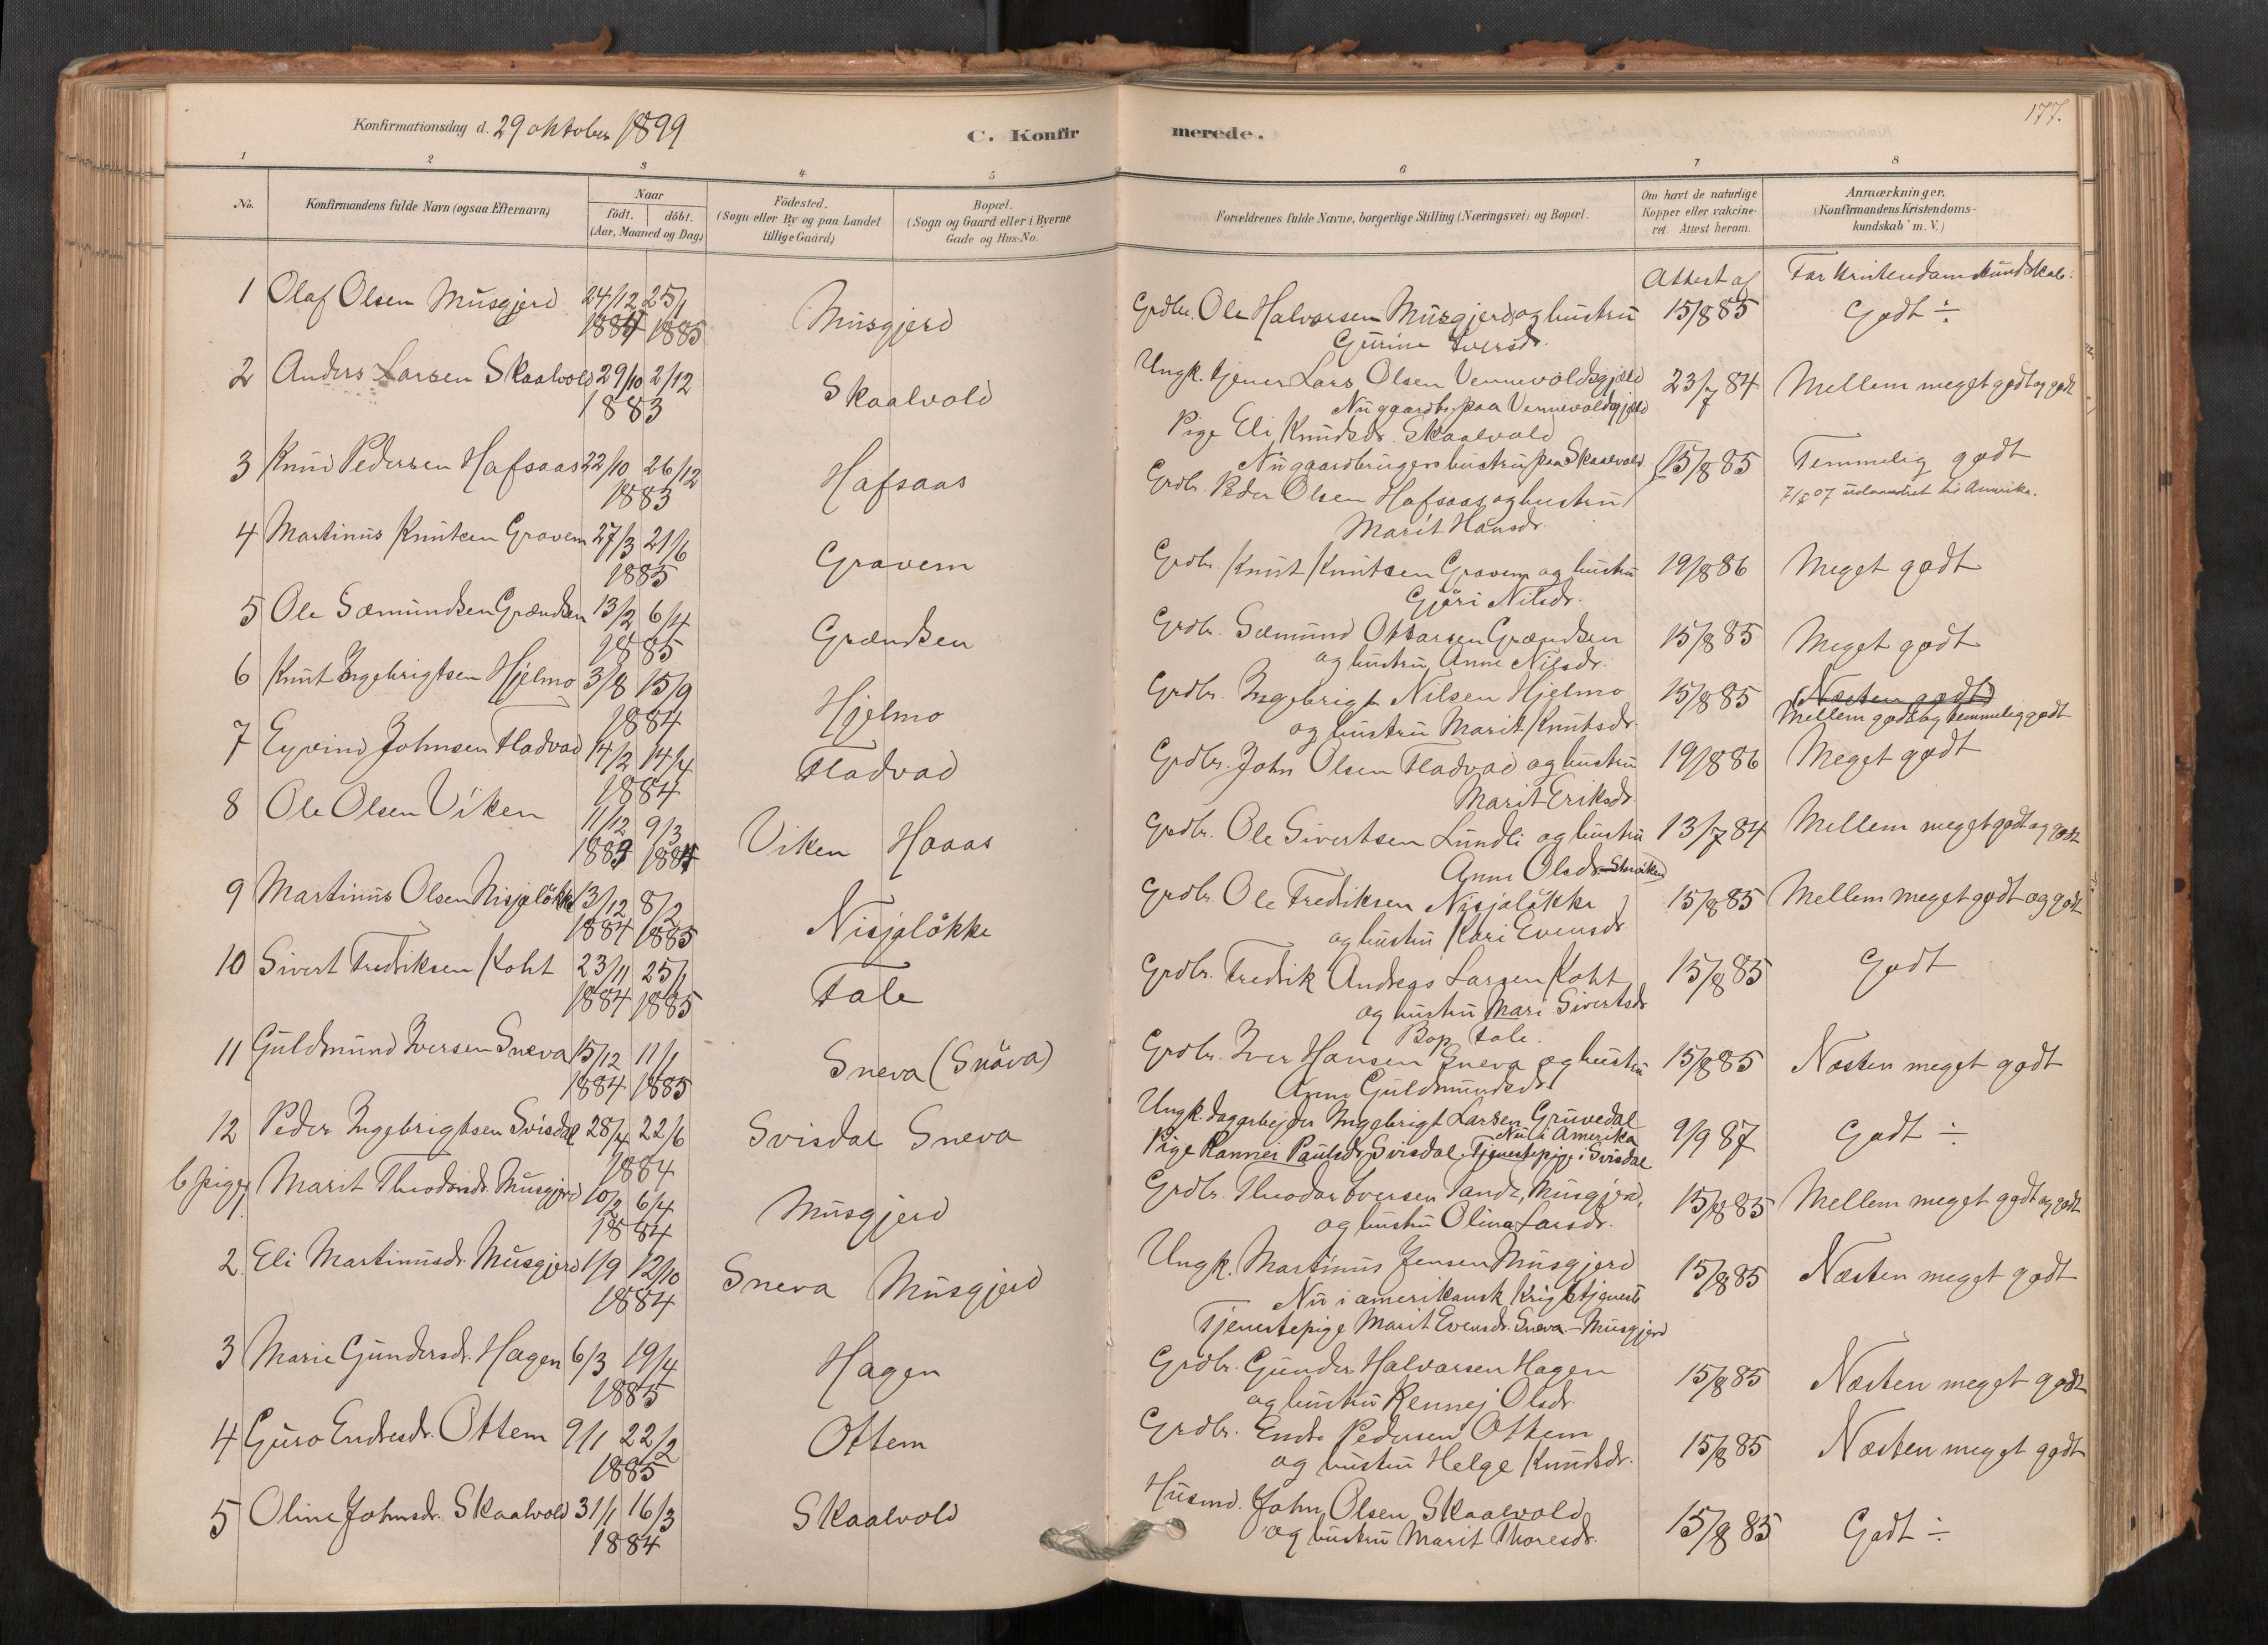 Konfirmationsdag d. 29 oktober 1899
C. Konfirmerede.
177.
1 2 3 4 5 6 7 8
No.
Konfirmandens fulde Navn (ogsaa Efternavn)
Naar
födt. döbt.
(Aar, Maaned og Dag)
Födested.
(Sogn eller By og paa Landet
tillige Gaard)
Bopæl.
(Sogn og Gaard eller i Byerne
Gade og Hus-No.
Forældrenes fulde Navne, borgerlige Stilling (Næringsvei) og Bopæl.
Om havt de naturlige
Kopper eller vakcine-
ret Attest herom.
Anmærkninger.
(Konfirmandens Kristendoms-
kundskab m. V.)
Attest af
For Kristendomskundskab:
1 Olaf Olsen Musgjerd 24/12 25/1 Musgjerd Grdbr. Ole Halvorsen Musgjerd og hustru 15/8 85 Godt ÷
1884 1885 Gurine Iversdr.
2 Anders Larsen Skaalvold 29/10 2/12 Skaalvold Ungk. tjener Lars Olsen Vennevoldsgjæld 23/7 84 Mellem meget godt og godt
1883 Nu gaardbr. paa Vennevoldsgjæld
Pige Eli Knudsdr. Skaalvold
Nu gaardbrugers hustru paa Skaalvold
3 Knud Pedersen Hafsaas 22/10 26/12 Hafsaas Grdb. Peder Olsen Hafsaas og hustru 15/8 85 Temmelig godt
1883 Marit Hansdr. 07 udvandret til Amerika.
4 Martinus Knutsen Gravem 27/3 21/6 Gravem Grdbr. Knut Knutsen Gravem og hustru 19/8 86 Meget godt
1885 Gjöri Nilsdr.
5 Ole Sæmundsen Grændsen 13/2 6/4 Grændsen Grdbr. Sæmund Ottarsen Grændsen 15/8 85 Meget godt
1885 og hustru Anne Nilsdr.
6 Knut Ingebrigtsen Hjelmo 3/8 15/9 Hjelmo Grdbr. Ingebrigt Nilsen Hjelmo 15/8 85 (Næsten godt)
1884 og hustru Marit Knutsdr. Mellem godt og temmelig godt
7 Eyvind Johnsen Fladvad 14/2 14/4 Fladvad Grdbr. John Olsen Fladvad og hustru 19/8 86 Meget godt
1884 Marit Eriksdr.
8 Ole Olsen Viken 11/12 9/3 Viken Hoaas Grdbr. Ole Sivertsen Lundli og hustru 13/7 84 Mellem meget godt og godt
1883 1884 Anne Olsdr.
9 Martinus Olsen Nisjalökke 13/12 8/2 Nisjalökke Grdbr. Ole Fredriksen Nisjalökke 15/8 85 Mellem meget godt og godt
1884 1885 og hustru Kari Evensdr.
10 Sivert Fredriksen Koht 23/11 25/1 Fale Grdbr. Fredrik Andreas Larsen Koht 15/8 85 Godt
1884 1885 og hustru Mari Sivertsdr
Bop. Fale.
11 Guldmund Iversen Sneva 15/12 11/1 Sneva (Snöva) Grdbr. Iver Hansen Sneva og hustru 15/8 85 Næsten meget godt
1884 1885 Anne Guldmundsdr
12 Peder Ingebrigtsen Svisdal 28/4 22/6 Svisdal Sneva Ungk. dagarbejder Ingebrigt Larsen Gruvedal 9/9 87 Godt ÷
1884 Nu i Amerika
Pige Rannei Paulsdr. Svisdal. Tjenestepige i Svisdal
6 piger Marit Theodorsdr. Musgjerd 10/2 6/4 Musgjerd Grdbr. Theodor Iversen Musgjerd, 15/8 85 Mellem meget godt og godt
1884 og hustru Olina Larsdr.
2. Eli Martinusdr. Musgjerd 1/9 12/10 Sneva Musgjerd Ungk. Martinus Jensen Musgjerd 15/8 85 Næsten meget godt
1884 Nu i amerikansk Krigstjeneste
Tjenestepige Marit Evensdr. Sneva - Musgjerd
3 Marie Gundersdr. Hagen 6/3 19/4 Hagen Grdbr. Gunder Halvorsen Hagen 15/8 85 Næsten meget godt
1885 og hustru Rennej Olsdr.
4 Guro Endresdr. Ottem 9/1 22/2 Ottem Grdbr. Endre Pedersen Ottem 15/8 85 Næsten meget godt
1885 og hustru Helge Knutsdr.
5 Oline Johnsdr. Skaalvold 31/1 16/3 Skaalvold Husmd. John Olsen Skaalvold 15/8 85 Godt ÷
1884 og hustru Marit Thoresdr.